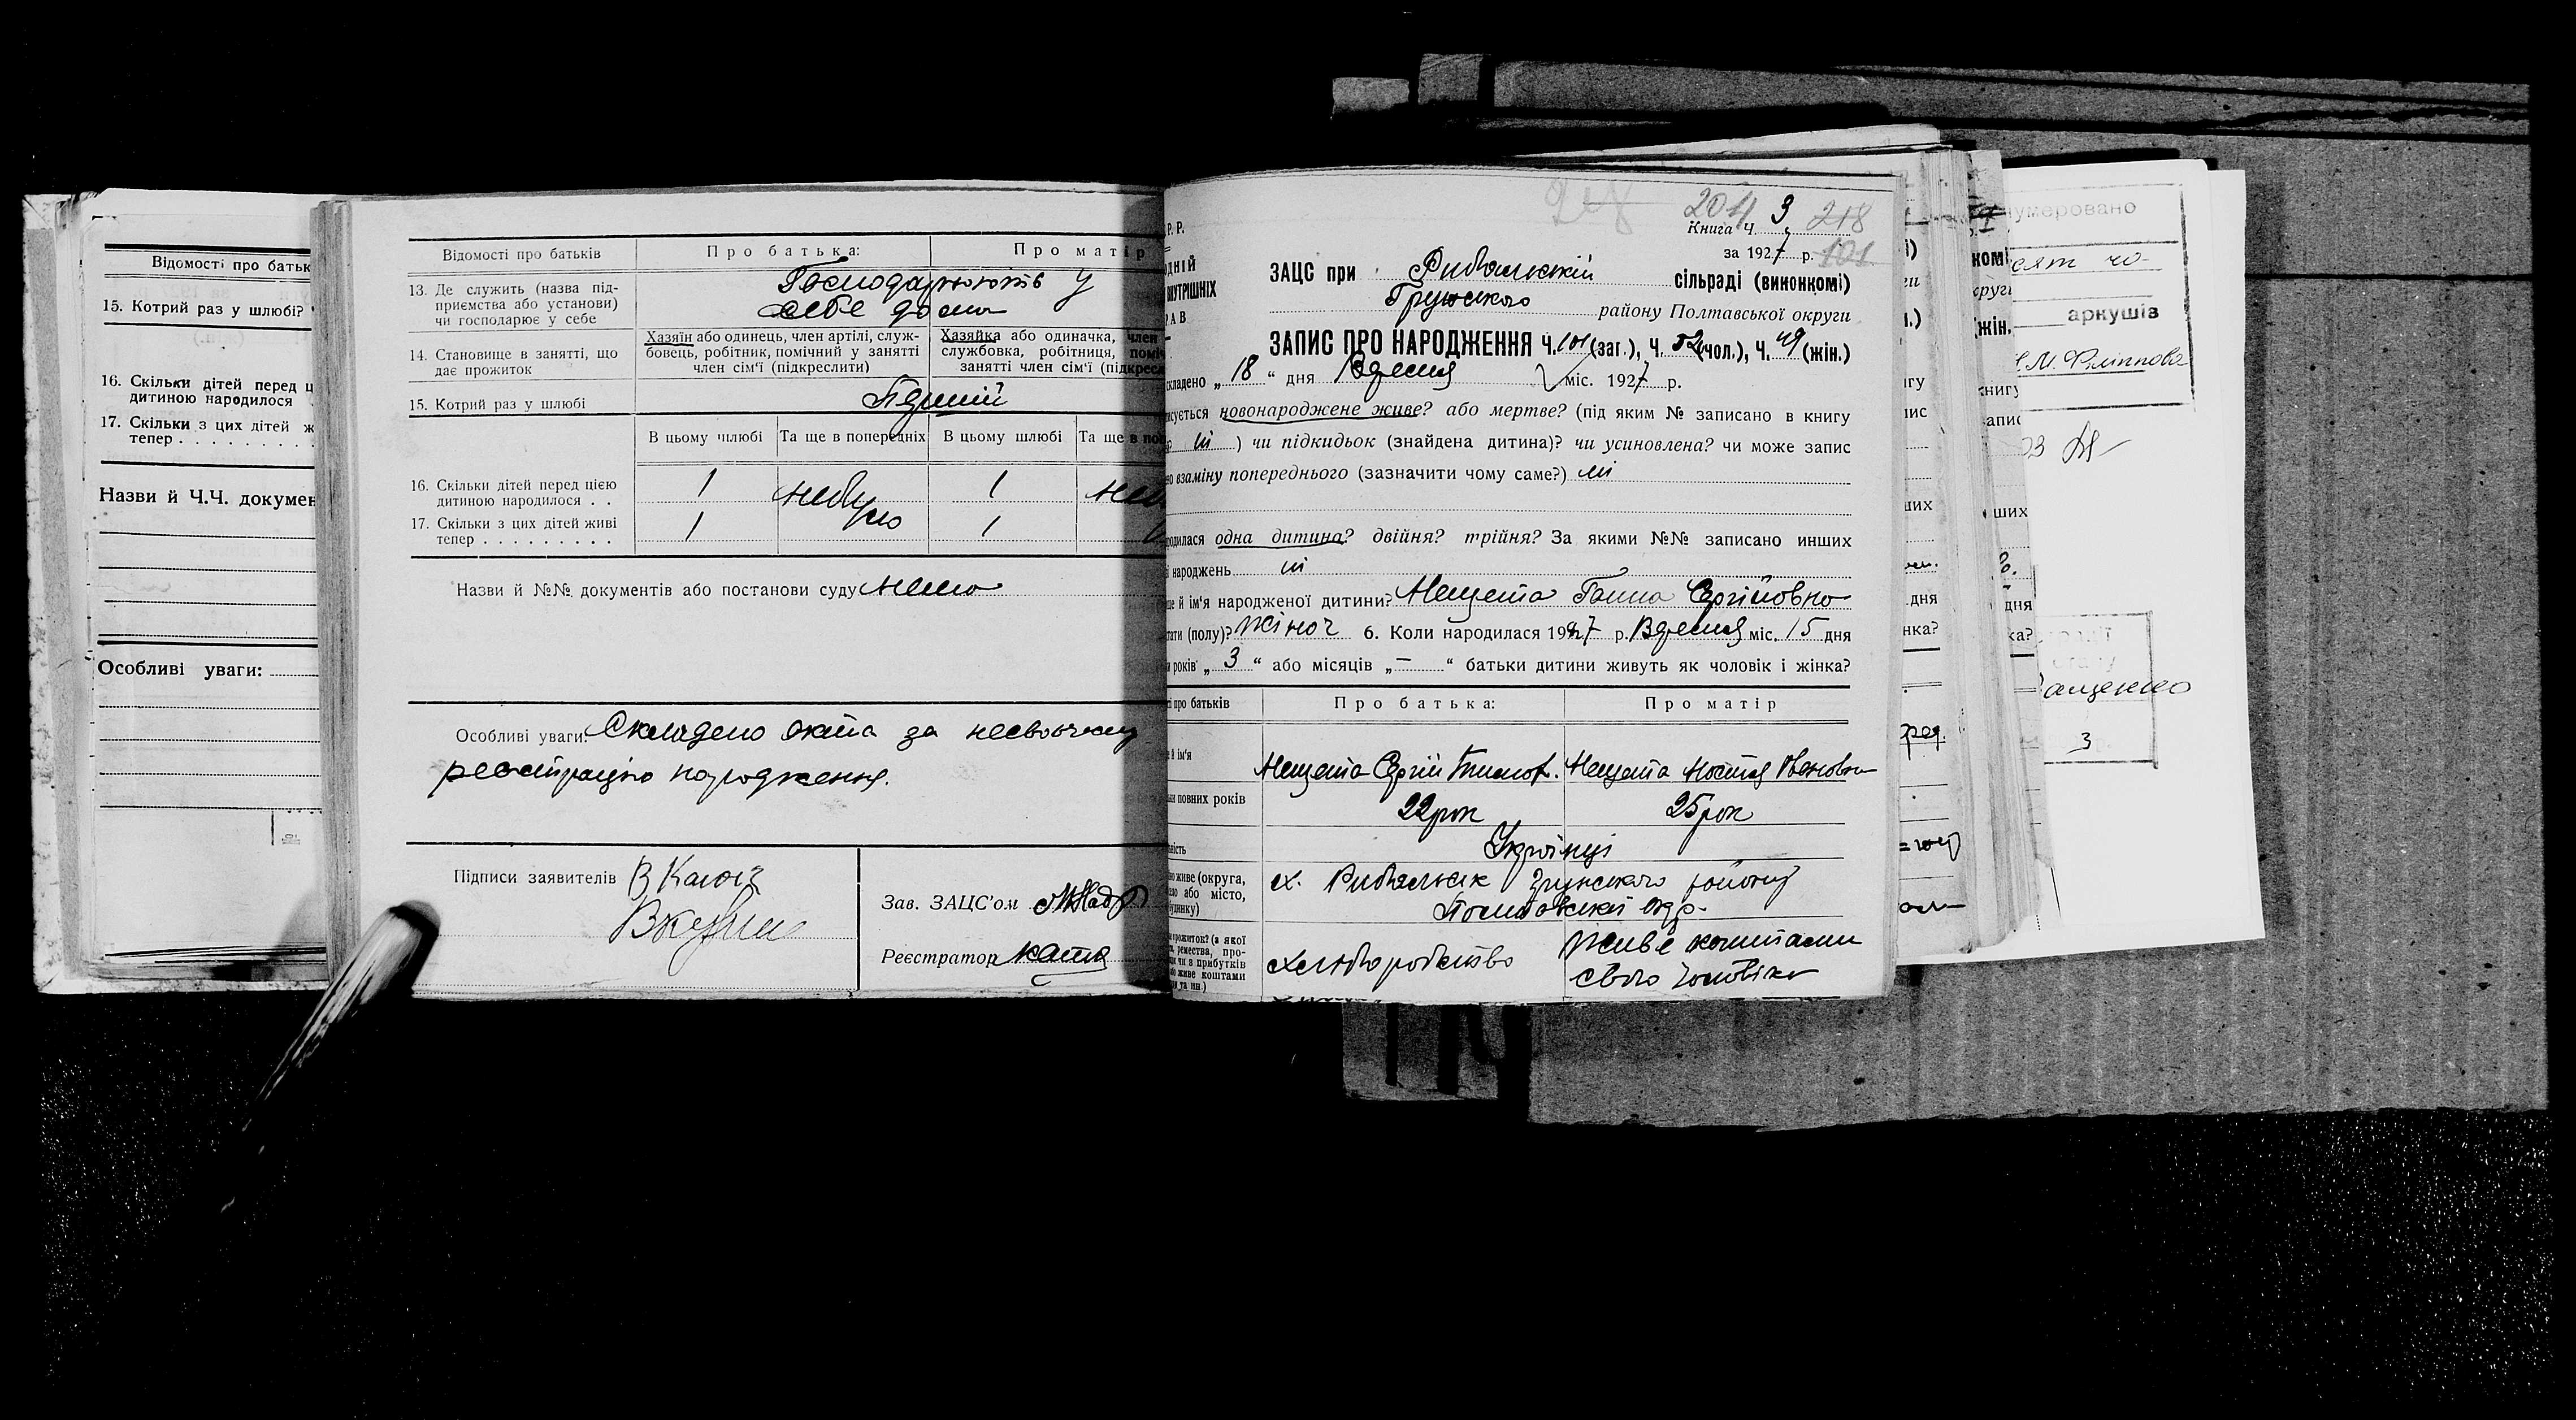 Відомості про батьк
15. Котрий раз у шлюбі?
16. Скільки дітей перед ц
дитиною народилося
17. Скільки з цих дітей ж
тепер
Назви й Ч.Ч. докумен
Особливі уваги:
Відомості про батьків
Про батька:
Про матір
13. Де служить (назва під-
приємства або установи)
чи господарює у себе
Господарюють у
себе дома
14. Становище в занятті, що
дає прожиток
Хазяїн або одинець, член артілі, служ-
бовець, робітник, помічний у занятті
член сім'ї (підкреслити)
Хазяйка або одиначка, член
службовка, робітниця, поміч
занятті член сім'ї (підкресл
15. Котрий раз у шлюбі
Перший
В цьому шлюбі Та ще в попередніх В цьому шлюбі Та ще в поп
16. Скільки дітей перед цією
дитиною народилося . .
1 небуло 1
17. Скільки з цих дітей живі
тепер
1 1
Назви й №№ документів або постанови суду нема
Особливі уваги: Складено акта за несвоєчасну
реєстрацію народження.
Підписи заявителів
Зав. ЗАЦС'ом
Реєстратор
Р. Р.
ОДНІЙ
ВНУТРІШНІХ
РАВ
204 3 218
Книга Ч.
за 1927 р. 101
ЗАЦС при Рибальській сільраді (виконкомі)
Грунського району Полтавської округи
ЗАПИС ПРО НАРОДЖЕННЯ Ч. 101 (заг.), Ч. 52 (чол.), Ч. 49 (жін.)
складено „ 18 “ дня Вересня міс. 1927 р.
исується новонароджене живе? або мертве? (під яким № записано в книгу
ні ) чи підкидьок (знайдена дитина)? чи усиновлена? чи може запис
но взаміну попереднього (зазначити чому саме?) ні
родилася одна дитина? двійня? трійня? За якими №№ записано инших
і народжень ні
ще й ім'я народженої дитини? Нещета Ганна Сергіївна
стати (полу)? жіноч 6. Коли народилася 1927 р. Вересня міс. 15 дня
и років „ 3 “ або місяців „ — “ батьки дитини живуть як чоловік і жінка?
і про батьків
Про батька:
Про матір
е й ім'я
Нещета Сергій Тимоф. Нещета Настя Івановна
ьки повних років
22 рок 25 рок
ність
Українці
но живе (округа,
ело або місто,
будинку)
х. Рибальськ Грунського району
Полтавської окр.
прожиток? (з якої
ремества, про-
чи з прибутків
бо живе коштами
и та ин.)
хліборобство
живе коштами
свого чоловіка
нумеровано
аркушів
3